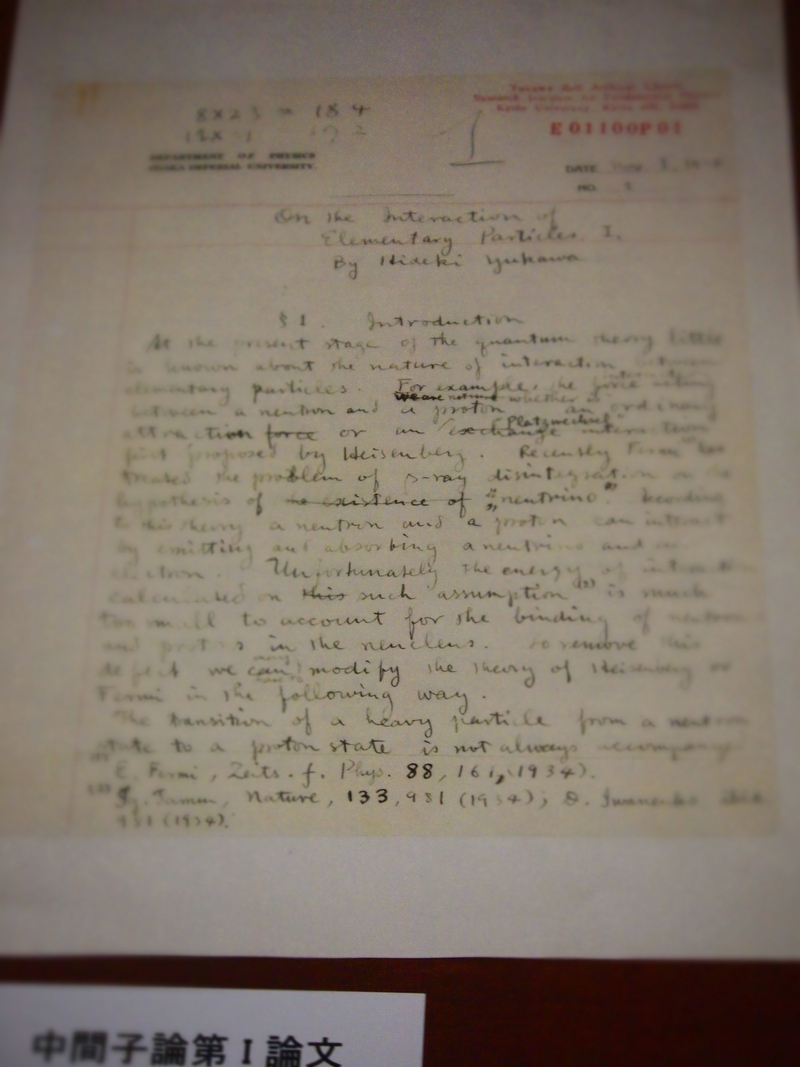 8 x 23 = 184
E01100P01
DEPARTMENT OF PHYSICS
OSAKA IMPERIAL UNIVERSITY.
DATE
NO. 1
On the Interaction of
Elementary Particles. I.
By Hideki Yukawa
§ 1. Introduction
At the present stage of the quantum theory little
is known about the nature of interaction between
elementary particles. For example, the force acting
We are not sure whether
between a neutron and a proton an ordinary
Platzwechsel
attraction force or an exchange interaction
first proposed by Heisenberg. Recently Fermi has
treated the problem of β-ray disintegration on the
hypothesis of the existence of „neutrino". According
to this theory a neutron and a proton can interact
by emitting and absorbing a neutrino and an
electron. Unfortunately the energy of interaction
calculated on this such assumption is much
too small to account for the binding of neutrons
and protons in the neucleus. To remove this
defect we can modify the theory of Heisenberg or
Fermi in the following way.
The transition of a heavy particle from a neutron
state to a proton state is not always accompany
E. Fermi, Zeits. f. Phys. 88, 161, (1934).
Ig. Tamm, Nature, 133, 981 (1934); D. Iwanenko ibid
981 (1934).
中間子論第Ⅰ論文